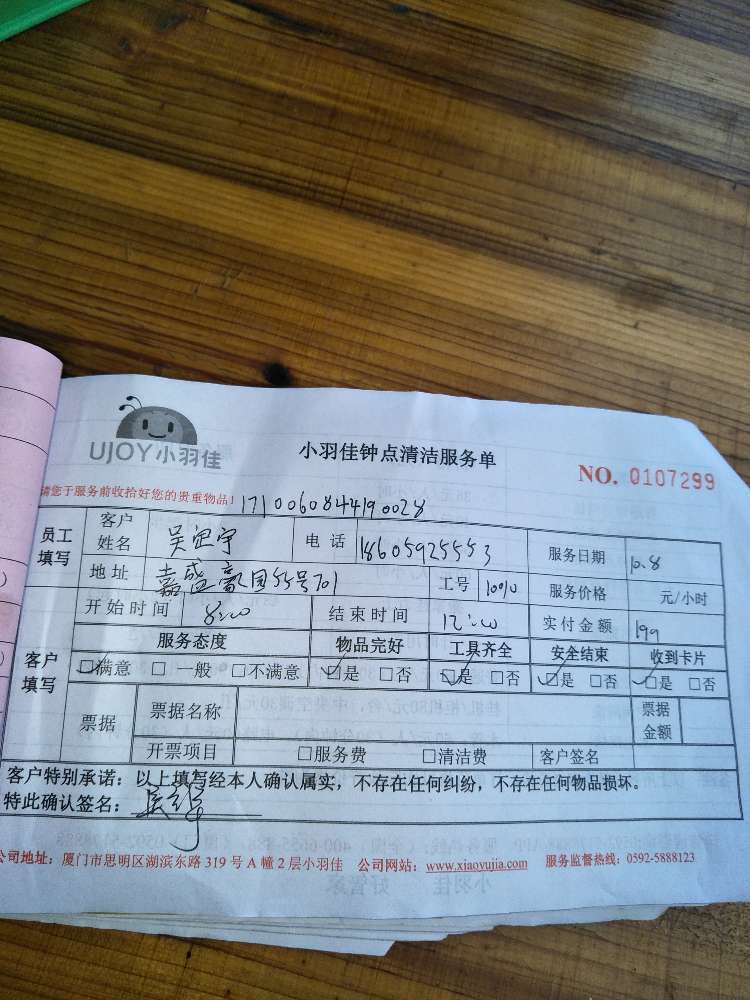 UJOY小羽佳
小羽佳钟点清洁服务单
NO. 0107299
请您于服务前收拾好您的贵重物品!
1710060844190028
员工填写 客户姓名 吴 宇 电话 18605925553 服务日期 10.8
地址 嘉盛豪园55号701 工号 10010 服务价格 元/小时
客户填写 开始时间 8:00 结束时间 12:00 实付金额 199
服务态度 物品完好 工具齐全 安全结束 收到卡片
□满意 □一般 □不满意 □是 □否 □是 □否 □是 □否 □是 □否
票据 票据名称 票据金额
开票项目 □服务费 □清洁费 客户签名
客户特别承诺:以上填写经本人确认属实,不存在任何纠纷,不存在任何物品损坏。
特此确认签名:
公司地址:厦门市思明区湖滨东路 319 号 A 幢 2 层小羽佳 公司网站:www.xiaoyujia.com 服务监督热线:0592-5888123